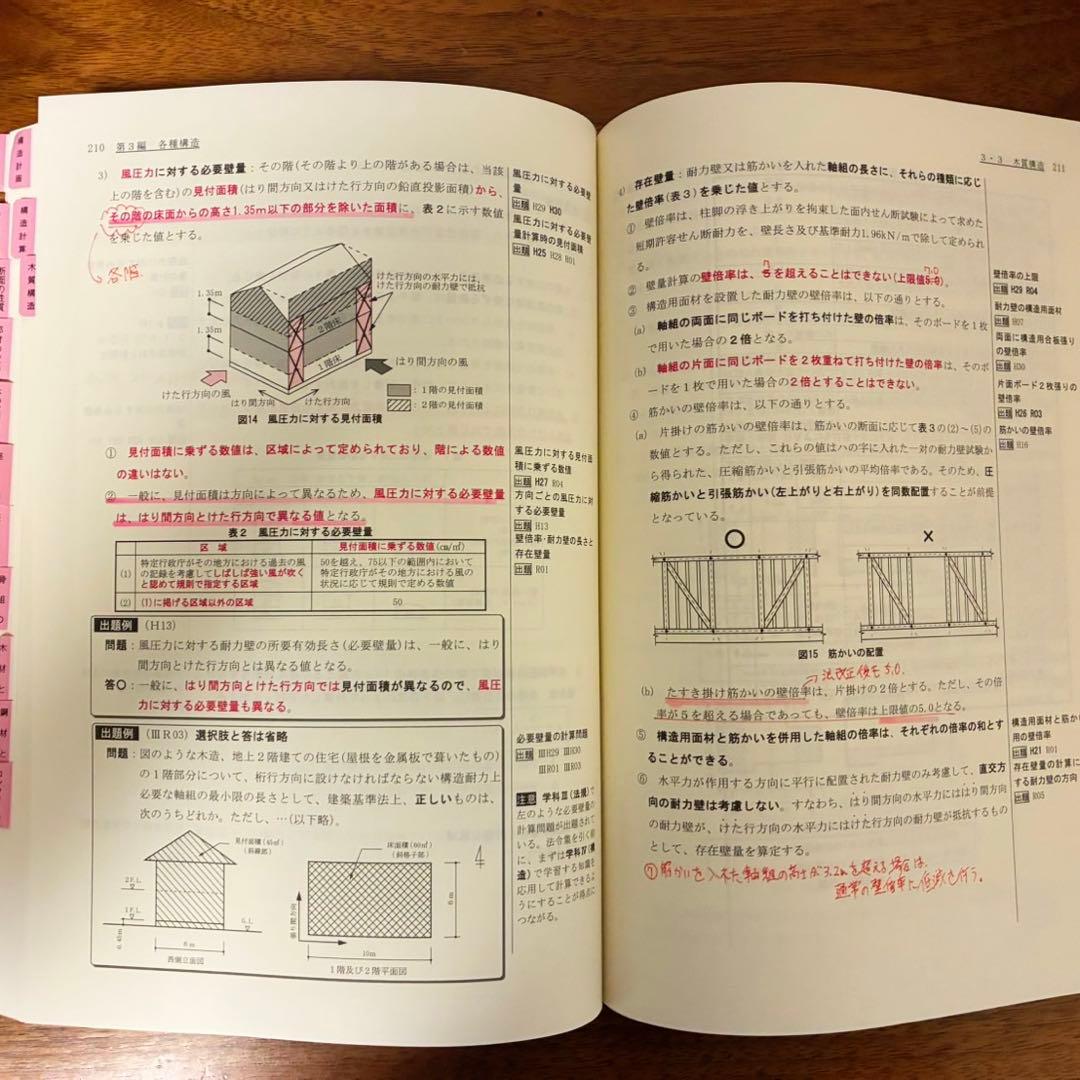 構造計画
構造計算
木質構造
断面の性質
210 第3編 各種構造
3) 風圧力に対する必要壁量：その階(その階より上の階がある場合は、当該
上の階を含む)の見付面積(はり間方向又はけた行方向の鉛直投影面積)から、
その階の床面からの高さ1.35m以下の部分を除いた面積に、表2に示す数値
を乗じた値とする。
各階
けた行方向の水平力には、
けた行方向の耐力壁で抵抗
1.35m
1.35m
2階床
1階床
はり間方向の風
けた行方向の風
はり間方向
けた行方向
：1階の見付面積
：2階の見付面積
図14 風圧力に対する見付面積
① 見付面積に乗ずる数値は、区域によって定められており、階による数値
の違いはない。
② 一般に、見付面積は方向によって異なるため、風圧力に対する必要壁量
は、はり間方向とけた行方向で異なる値となる。
表2 風圧力に対する必要壁量
区 域 見付面積に乗ずる数値(cm/㎡)
(1) 特定行政庁がその地方における過去の風
の記録を考慮してしばしば強い風が吹く
と認めて規則で指定する区域
50を超え、75以下の範囲内において
特定行政庁がその地方における風の
状況に応じて規則で定める数値
(2) (1)に掲げる区域以外の区域 50
出題例 (H13)
問題：風圧力に対する耐力壁の所要有効長さ(必要壁量)は、一般に、はり
間方向とけた行方向とは異なる値となる。
答○：一般に、はり間方向とけた行方向では見付面積が異なるので、風圧
力に対する必要壁量も異なる。
出題例 (ⅢR03) 選択肢と答は省略
問題：図のような木造、地上2階建ての住宅(屋根を金属板で葺いたもの)
の1階部分について、桁行方向に設けなければならない構造耐力上
必要な軸組の最小限の長さとして、建築基準法上、正しいものは、
次のうちどれか。ただし、…(以下略)。
見付面積(45㎡)
(斜線部)
2F.L.
1F.L.
G.L.
0.45m
6m
西側立面図
床面積(60㎡)
(斜格子部)
4
張り間方向
6m
10m
1階及び2階平面図
風圧力に対する必要壁
量
出題 H29 H30
風圧力に対する必要壁
量計算時の見付面積
出題 H25 H28 R01
風圧力に対する見付面
積に乗ずる数値
出題 H27 R04
方向ごとの風圧力に対
する必要壁量
出題 H13
壁倍率・耐力壁の長さと
存在壁量
出題 R01
必要壁量の計算問題
出題 ⅢH29 ⅢH30
ⅢR01 ⅢR03
注意 学科Ⅲ(法規)で
左のような必要壁量の
計算問題が出題されて
いる。法令集を引く前
に、まずは学科Ⅳ(構
造)で学習する知識を
応用して計算できるよ
うにすることが得点に
つながる。
3・3 木質構造 211
4) 存在壁量：耐力壁又は筋かいを入れた軸組の長さに、それらの種類に応じ
た壁倍率(表3)を乗じた値とする。
① 壁倍率は、柱脚の浮き上がりを拘束した面内せん断試験によって求めた
短期許容せん断耐力を、壁長さ及び基準耐力1.96kN/mで除して定められ
る。
7 7.0
② 壁量計算の壁倍率は、5を超えることはできない(上限値5.0)。
③ 構造用面材を設置した耐力壁の壁倍率は、以下の通りとする。
(a) 軸組の両面に同じボードを打ち付けた壁の倍率は、そのボードを1枚
で用いた場合の2倍となる。
(b) 軸組の片面に同じボードを2枚重ねて打ち付けた壁の倍率は、そのボ
ードを1枚で用いた場合の2倍とすることはできない。
④ 筋かいの壁倍率は、以下の通りとする。
(a) 片掛けの筋かいの壁倍率は、筋かいの断面に応じて表3の(2)～(5)の
数値とする。ただし、これらの値はハの字に入れた一対の耐力壁試験か
ら得られた、圧縮筋かいと引張筋かいの平均倍率である。そのため、圧
縮筋かいと引張筋かい(左上がりと右上がり)を同数配置することが前提
となっている。
○ ×
図15 筋かいの配置
法改正後も5.0.
(b) たすき掛け筋かいの壁倍率は、片掛けの2倍とする。ただし、その倍
率が5を超える場合であっても、壁倍率は上限値の5.0となる。
⑤ 構造用面材と筋かいを併用した軸組の倍率は、それぞれの倍率の和とす
ることができる。
⑥ 水平力が作用する方向に平行に配置された耐力壁のみ考慮して、直交方
向の耐力壁は考慮しない。すなわち、はり間方向の水平力にははり間方向
の耐力壁が、けた行方向の水平力にはけた行方向の耐力壁が抵抗するもの
として、存在壁量を算定する。
⑦筋かいを入れた軸組の高さが3.2mを超える場合は、
通常の壁倍率に低減を行う。
壁倍率の上限
出題 H29 R04
耐力壁の構造用面材
出題 H07
両面に構造用合板張り
の壁倍率
出題 H30
片面ボード2枚張りの
壁倍率
出題 H26 R03
筋かいの壁倍率
出題 H16
構造用面材と筋かい
用の壁倍率
出題 H21 R01
存在壁量の計算に
する耐力壁の方向
出題 R05